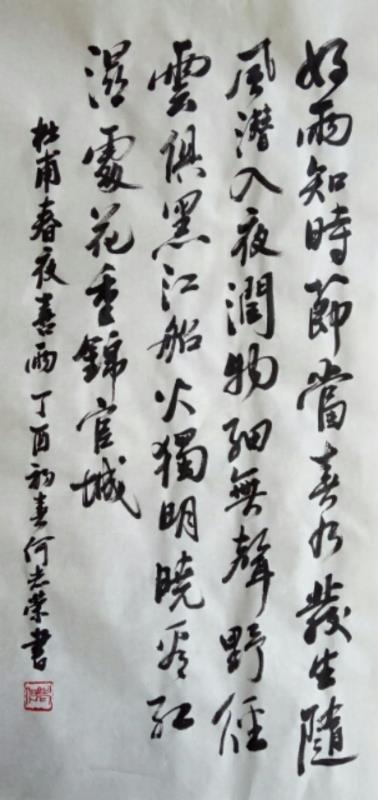 好雨知時節當春乃發生隨
風潛入夜潤物細無聲野徑
雲俱黑江船火獨明曉看紅
濕處花重錦官城
杜甫春夜喜雨丁酉初春何志榮書